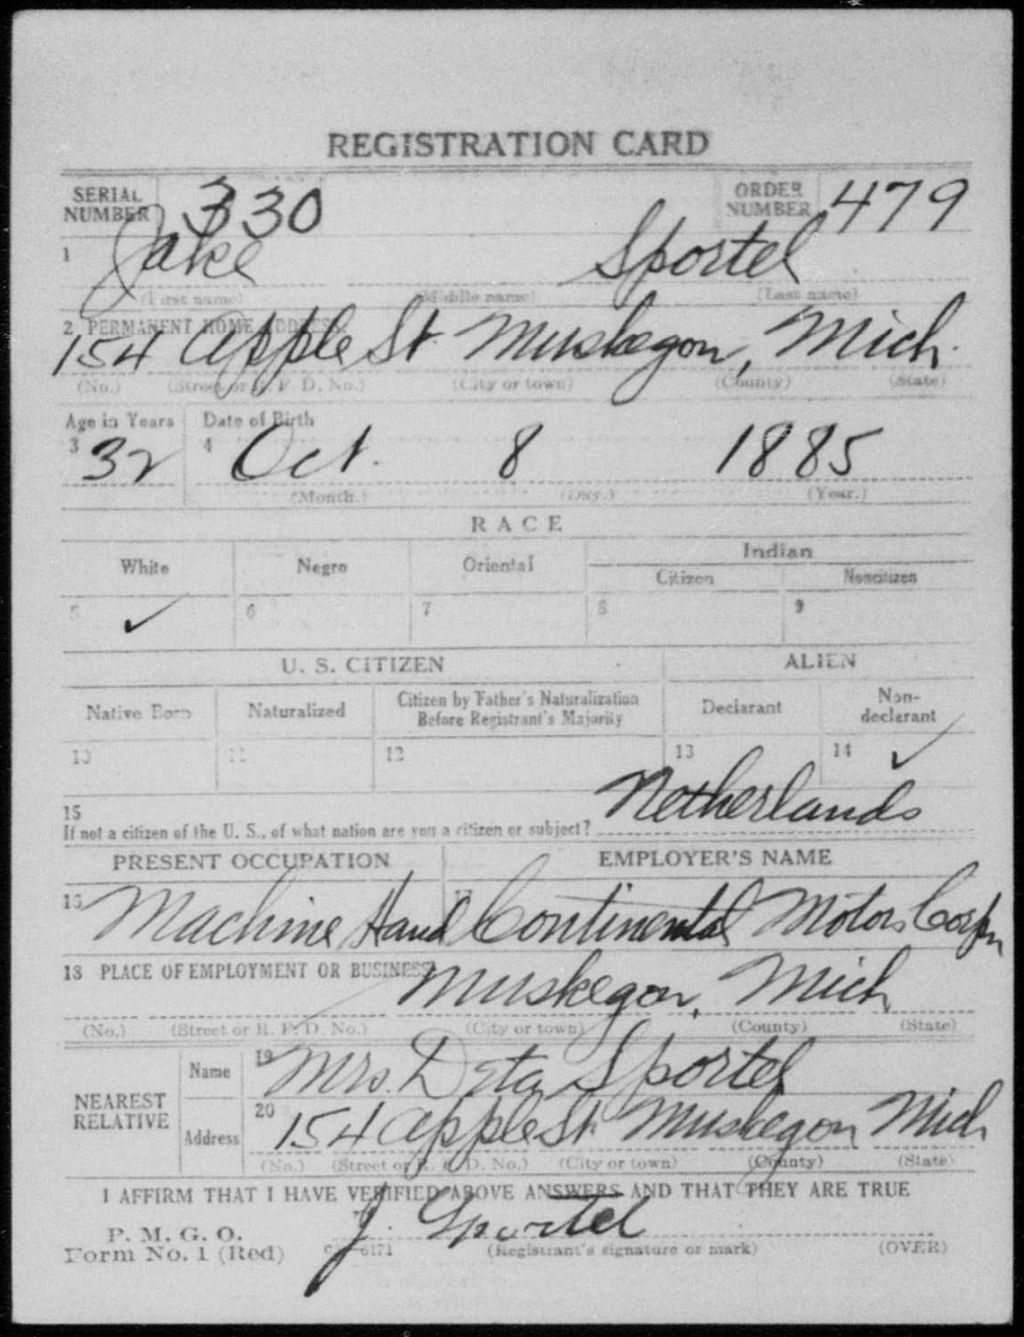 REGISTRATION CARD
SERIAL NUMBER 330 ORDER NUMBER 479
1 Jake Sportel
(First name) (Middle name) (Last name)
2 PERMANENT HOME ADDRESS:
154 Apple St Muskegon, Mich.
(No.) (Street or R. F. D. No.) (City or town) (County) (State)
Age in Years Date of Birth
3 32 4 Oct. 8 1885
(Month.) (Day.) (Year.)
RACE
White Negro Oriental Indian
Citizen Noncitizen
5 ✓ 6 7 8 9
U. S. CITIZEN ALIEN
Native Born Naturalized Citizen by Father's Naturalization Before Registrant's Majority Declarant Non-declarant
10 11 12 13 14 ✓
15 If not a citizen of the U. S., of what nation are you a citizen or subject? Netherlands
PRESENT OCCUPATION EMPLOYER'S NAME
16 Machine Hand 17 Continental Motors Corpn
18 PLACE OF EMPLOYMENT OR BUSINESS Muskegon, Mich
(No.) (Street or R. F. D. No.) (City or town) (County) (State)
NEAREST RELATIVE
Name 19 Mrs. Sportel
Address 20 154 Apple St Muskegon Mich
(No.) (Street or R. F. D. No.) (City or town) (County) (State)
I AFFIRM THAT I HAVE VERIFIED ABOVE ANSWERS AND THAT THEY ARE TRUE
P. M. G. O.
Form No. 1 (Red) J. Sportel
(Registrant's signature or mark) (OVER)